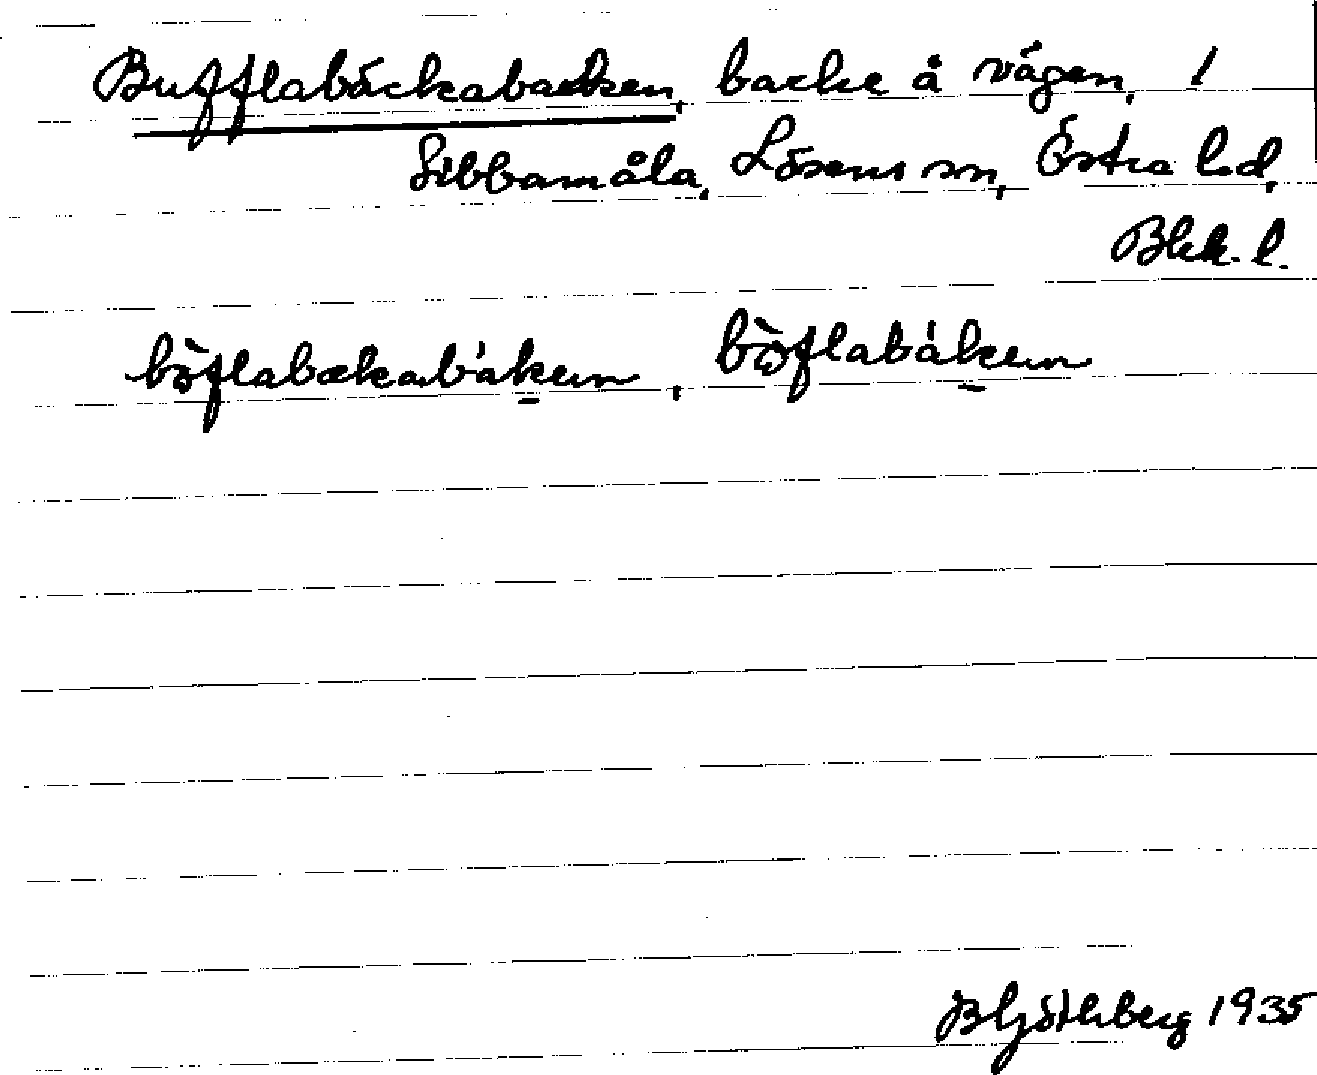 Bufflabäckabacken, backe å vägen, 1
Sibbamåla, Lösens sn, Östra hd,
Blek. l.
bòflabækabáken, bòflabáken
B Hjöthberg 1935